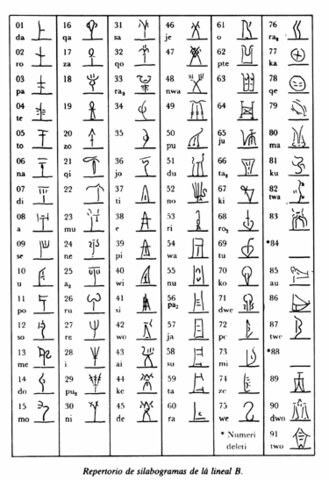 01
da
02
ro
03
pa
04
te
05
to
06
na
07
di
08
a
09
se
10
u
11
po
12
so
13
me
14
do
15
mo
16
qa
17
za
18
19
20
zo
21
qi
22
23
mu
24
ne
25
a₂
26
ru
27
re
28
i
29
pu₂
30
ni
31
sa
32
qo
33
ra₃
34
35
36
jo
37
ti
38
e
39
pi
40
wi
41
si
42
wo
43
ai
44
ke
45
de
46
je
47
48
nwa
49
50
pu
51
du
52
no
53
ri
54
wa
55
nu
56
pa₂
57
ja
58
su
59
ta
60
ra
61
o
62
pte
63
64
65
ju
66
ta₂
67
ki
68
ro₂
69
tu
70
ko
71
dwe
72
pe
73
mi
74
ze
75
we
* Numeri
deleti
76
ra₂
77
ka
78
qe
79
80
ma
81
ku
82
twa
83
*84
85
au
86
87
twe
*88
89
90
dwo
91
two
Repertorio de silabogramas de la lineal B.